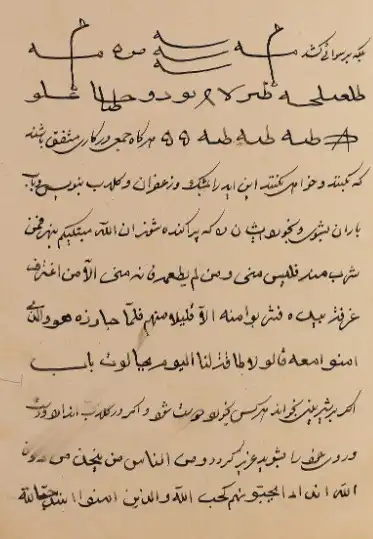 بلکه برسوائی کشد
طلعیلحه
طه طه طه هرگاه جمعی در کاری متفق باشند
که نکنند و خواهی نکنند این آیه را بمشک و زعفران و گلاب بنویس و بآب
باران بشوی و بخورد ایشان ده که پراکنده شوند ان الله مبتلیکم بنهر فمن
شرب منه فلیس منی و من لم یطعمه فانه منی الا من اغترف
غرفة بیده فشربوا منه الا قلیلا منهم فلما جاوزه هو والذین
امنوا معه قالوا لا طاقة لنا الیوم بجالوت باب
اگر بر شیرینی بخواند هر کس بخورد دوست شود و اگر در گلاب اندازد
و روی خود را بشوید عزیز گردد و من الناس من یتخذ من دون
الله اندادا یحبونهم کحب الله والذین امنوا اشد حبا لله